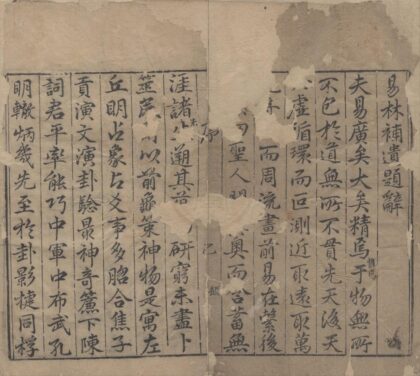 易林補遺題辭
夫易廣矣大矣精焉于物無所
不包於道無所不貫先天後天
虛循環而回測近取遠取萬
而周流畫前易在繫後
聖人奧而含蓄無
涯諸溯其研窮未盡卜
筮以前策神物是寓左
丘明占象占爻事多脗合焦子
貢演文演卦驗最神奇簾下陳
詞君平率能巧中軍中布武孔
明轍炳幾先至於卦影捷同桴